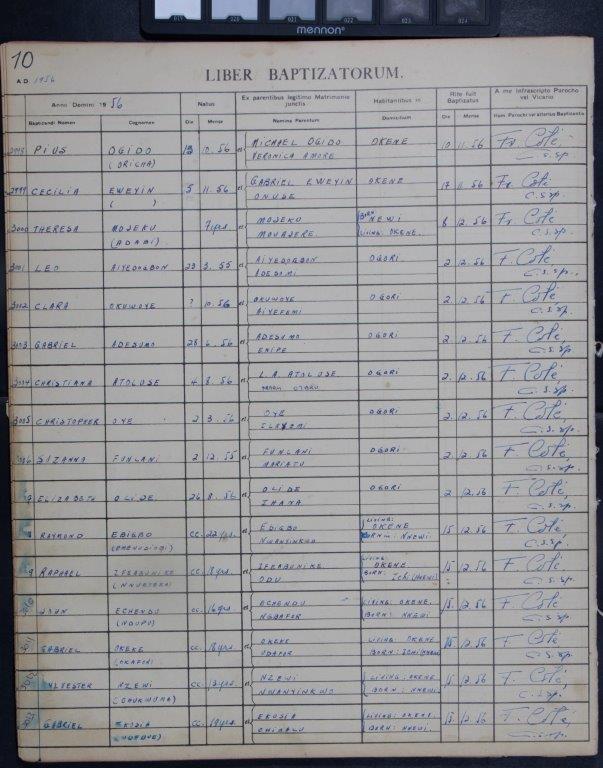 019 020 021 022 023 024
mennon
10
A.D. 1956
LIBER BAPTIZATORUM.
Anno Domini 1956
Natus
Ex parentibus legitimo Matrimonio junctis
Habitantibus in
Rite fuit Baptizatus
A me infrascripto Parocho vel Vicario
Baptizandi Nomen
Cognomen
Die
Mense
Nomina Parentum
Domicilium
Die
Mense
PIUS OGIDO 10.56 MICHAEL OGIDO OKENE 10 11.56 Fr. Coté
VERONICA AMORE C.S.Sp
2999 CECILIA EWEYIN 5 11.56 GABRIEL EWEYIN OKENE 17 11.56 Fr. Coté
( ) ONUSE C.S.Sp.
3000 THERESA MOJEKU 7yrs. MOJEKU BORN NEWI 8 12.56 Fr. Coté
(ADABI) LIVING: OKENE. C.S.Sp.
3001 LEO AIYEDOGBON 3.55 AIYEDOGBON OGORI 2 12.56 F. Coté
C.S.Sp.
3002 CLARA OKUWOYE ? 10.56 OKUWOYE OGORI 2 12.56 F. Coté
AIYEFEMI C.S.Sp.
3003 GABRIEL ADESUMO 28 6.56 ADESUMO OGORI 2 12.56 F. Coté
ENIPE C.S.Sp
3004 CHRISTIANA ATOLUSE 4 8.56 L.A. ATOLUSE OGORI 2 12.56 F. Coté
C.S.Sp.
3005 CHRISTOPHER OYE 2 3.56 OYE OGORI 2 12.56 F. Coté
C.S.Sp.
SUZANNA FUNLANI 2 12.55 FUNLANI OGORI 2 12.56 F. Coté
MARIATU C.S.Sp.
ELIZABETH OLIDE 26 8.56 OLIDE OGORI 2 12.56 F. Coté
IHANA C.S.Sp.
RAYMOND cc. 22 yrs. LIVING: OKENE 15 12.56 F. Coté
NWANYINKWO BORN: NNEWI C.S.Sp.
RAPHAEL IFEABUNIKE cc. 18 yrs. IFEABUNIKE LIVING: OKENE 15 12.56 F. Coté
ODU BORN: Ichi (NNEWI) C.S.Sp.
JOHN ECHENDU cc. 16 yrs. ECHENDU LIVING: OKENE 15 12.56 F. Coté
(NDUPU) NGBAFOR BORN: NNEWI C.S.Sp.
3011 GABRIEL OKEKE cc. 18 yrs. OKEKE LIVING: OKENE 15 12.56 F. Coté
(OKAFOR) UDAFOR BORN: ICHI (NNEWI C.S.Sp.
SYLVESTER NZEWI cc. NZEWI LIVING: OKENE 15 12.56 F. Coté
(CHUKWUMA) NWANYINKWO BORN: NNEWI C.S.Sp.
GABRIEL EKOSIA cc. EKOSIA LIVING: OKENE 15 12.56 F. Coté
BORN: NNEWI. C.S.Sp.